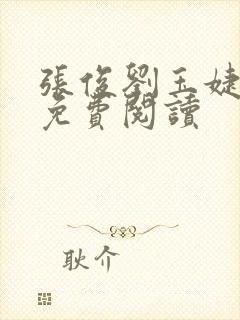 張俊劉玉婕
免費閱讀
耿介